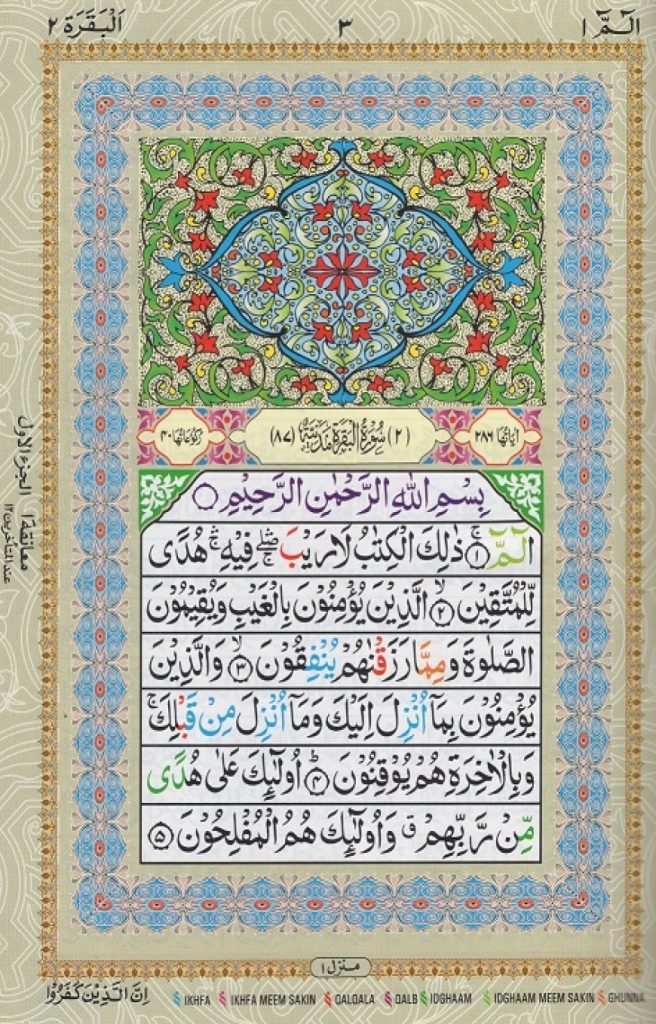 الٓمّٓ ١
٣
اَلْبَقَرَة ٢
اٰیَاتُهَا ٢٨٦
(٢) سُوْرَةُ الْبَقَرَةِ مَدَنِيَّةٌ (٨٧)
رُكُوْعَاتُهَا ٤٠
بِسْمِ اللّٰهِ الرَّحْمٰنِ الرَّحِيْمِ
الٓمّٓ ۚ﴿١﴾ ذٰلِكَ الْكِتٰبُ لَا رَيْبَ ۛۖۚ فِيْهِ ۛۚ هُدًى
لِّلْمُتَّقِيْنَ ۙ﴿٢﴾ الَّذِيْنَ يُؤْمِنُوْنَ بِالْغَيْبِ وَيُقِيْمُوْنَ
الصَّلٰوةَ وَمِمَّا رَزَقْنٰهُمْ يُنْفِقُوْنَ ۙ﴿٣﴾ وَالَّذِيْنَ
يُؤْمِنُوْنَ بِمَآ اُنْزِلَ اِلَيْكَ وَمَآ اُنْزِلَ مِنْ قَبْلِكَ ۚ
وَبِالْاٰخِرَةِ هُمْ يُوْقِنُوْنَ ؕ﴿٤﴾ اُولٰٓئِكَ عَلٰى هُدًى
مِّنْ رَّبِّهِمْ ق وَاُولٰٓئِكَ هُمُ الْمُفْلِحُوْنَ ﴿٥﴾
معانقة ١ الجزء الاول
عند المتأخرين ١٢
منزل ١
اِنَّ الَّذِيْنَ كَفَرُوْا
IKHFA IKHFA MEEM SAKIN QALQALA QALB IDGHAAM IDGHAAM MEEM SAKIN GHUNNA